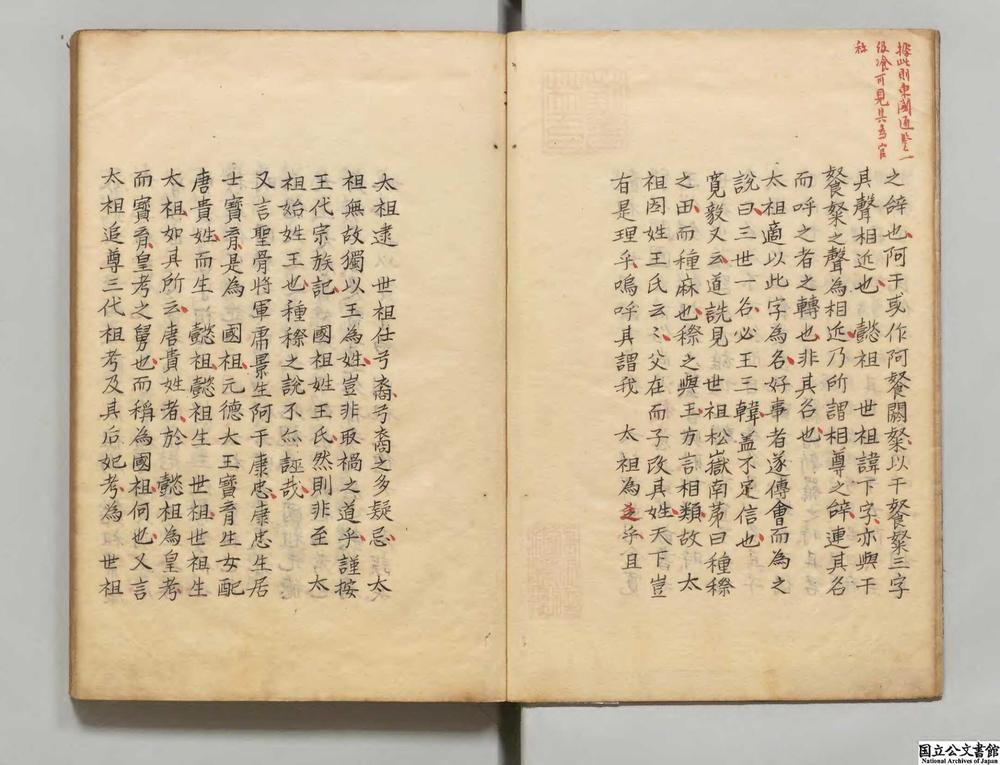 據此則東國通鑑一
級飡可見其為官
称
之辝也阿干或作阿餐閼粲以干餐粲三字
其聲相近也　懿祖　世祖諱下字亦與干
餐粲之聲為相近乃所謂相尊之辝連其名
而呼之者之轉也非其名也
太祖適以此字為名好事者遂傳會而為之
說曰三世一名必王三韓盖不足信也
寬毅又云道詵見　世祖松嶽南第曰種穄
之田而種麻也穄之與王方言相類故　太
祖因姓王氏云々父在而子改其姓天下豈
有是理乎嗚呼其謂我　太祖為之乎且
太祖逮　世祖仕弓裔弓裔之多疑忌　太
祖無故獨以王為姓豈非取禍之道乎謹按
王代宗族記　國祖姓王氏然則非至　太
祖始姓王也種穄之說不亦誣哉
又言聖骨將軍虎景生阿干康忠康忠生居
士寶育是為　國祖元德大王寶育生女配
唐貴姓而生　懿祖懿祖生　世祖世祖生
太祖如其所云唐貴姓者於　懿祖為皇考
而寶育皇考之舅也而稱為國祖何也又言
太祖追尊三代祖考及其后妃考為　世祖
国立公文書館
National Archives of Japan